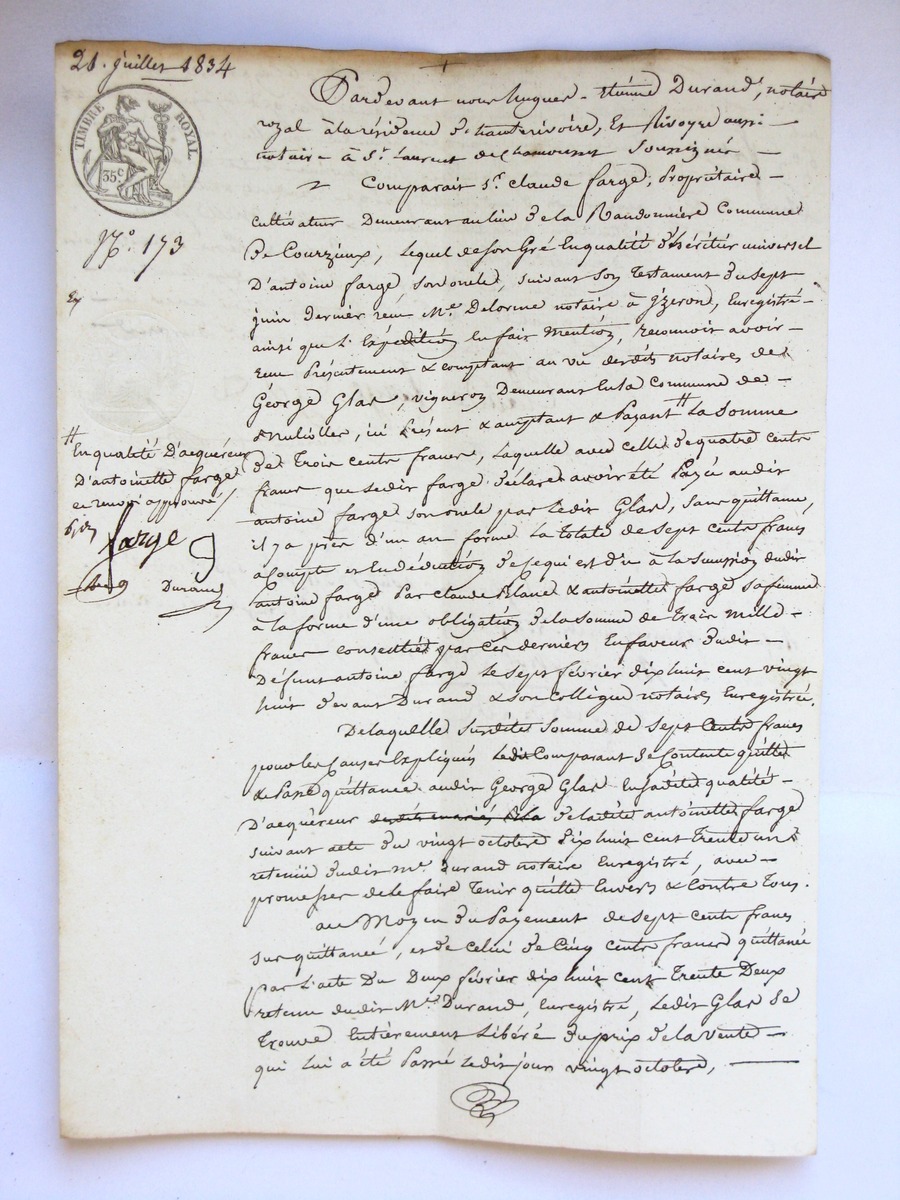 21. juillet 1834
TIMBRE ROYAL
35c
N.° 173
Pardevant nous hugues - etienne Durand, notaire
royal à la résidence de hauterivoire, Et Rivoyre aussi
notaire à St. Laurent de chamousset Soussignés
Comparait Sr. claude farge, Propriétaire
cultivateur Demeurant au lieu de la Randonnière Commune
de Courzieux, lequel de son Gré En qualité d'héritier universel
D'antoine farge son oncle, suivant son Testament du sept
juin dernier reçu Me. Delorme notaire à yzeron, Enregistré
ainsi que l'Expédition En fait mention, reconnoit avoir
reçu Présentement & comptant au vu desdits notaires de
George Glas, vigneron Demeurant En la Commune de
ici Présent & acceptant & Payant # la Somme
de Trois cents francs, laquelle avec celle de quatre cents
francs que ledit farge déclare avoir été Payée audit
antoine farge son oncle par ledit Glas, sans quittance,
il y a près d'un an forme la totale de sept cents francs
acompte et En déduction de ce qui est dû à la succession dudit
antoine farge Par claude & antoinette farge sa femme
à la forme d'une obligation de la somme de trois mille
francs consentie par ces derniers En faveur dudit
Defunt antoine farge le sept février dix huit cent vingt
huit devant Durand & son collègue notaires Enregistrée.
De laquelle Susdite Somme de sept Cents francs
pour les Causes Expliqués ledit Comparant se Contente quitte
& Passe quittance audit George Glas En sadite qualité
D'acquéreur de ladite antoinette farge
suivant acte du vingt octobre dix huit cent Trente un
retenu dudit me. durand notaire Enregistré, avec
promesses de le faire Tenir quitte Envers & Contre Tous.
au Moyen du Payement de sept cents francs
sus quittancé, et de celui de Cinq cents francs quittancé
par l'acte Du Deux février dix huit cent Trente Deux
retenu dudit Me. Durand, Enregistré, ledit Glas se
trouve Entièrement Libéré du prix de la vente
qui lui a été Passé ledit jour vingt octobre,
# En qualité D'acquéreur
D'antoinette farge
ce renvoi approuvé
farge
Durand